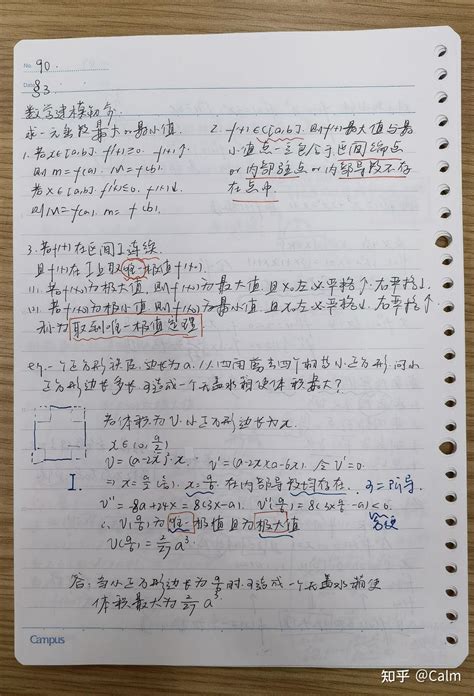 No. 90.
Date §3
数学建模初介
求一元函数最大or最小值.
1. 若x∈[a,b]. f'(x)≥0. f(x)↑
则 m=f(a). M=f(b).
若x∈[a,b]. f'(x)≤0. f(x)↓
则M=f(a). m=f(b).
2. f(x)∈C[a,b]. 则f(x)最大值与最
小值点一定包含于区间端点
or内部驻点or内部导数不存
在点中.
3. 若f(x)在区间I连续
且f(x)在I上取唯一极值f(x₀).
(1). 若f(x₀)为极大值,则f(x₀)为最大值,且x₀左必严格↑,右严格↓.
(2). 若f(x₀)为极小值,则f(x₀)为最小值,且x₀左必严格↓,右严格↑.
称为 取到唯一极值定理
eg. 一个正方形铁皮,边长为a.从四角剪去四个相等小正方形.问小
正方形边长多长可造成一个无盖水箱使体积最大?
若体积为V.小正方形边长为x.
x∈(0, a/2)
V=(a-2x)²·x. V'=(a-2x)(a-6x). 令V'=0.
I. ⇒ x=a/2(舍). x=a/6. 在内部导数均存在.
V''=-8a+24x=8(3x-a). V''(a/6)=8(3×a/6-a)<0.
∴ V(a/6)为唯一极值且为极大值
V(a/6)=2/27 a³.
答:当小正方形边长为a/6时.可造成一个无盖水箱使
体积最大为2/27 a³.
Campus
知乎 @Calm